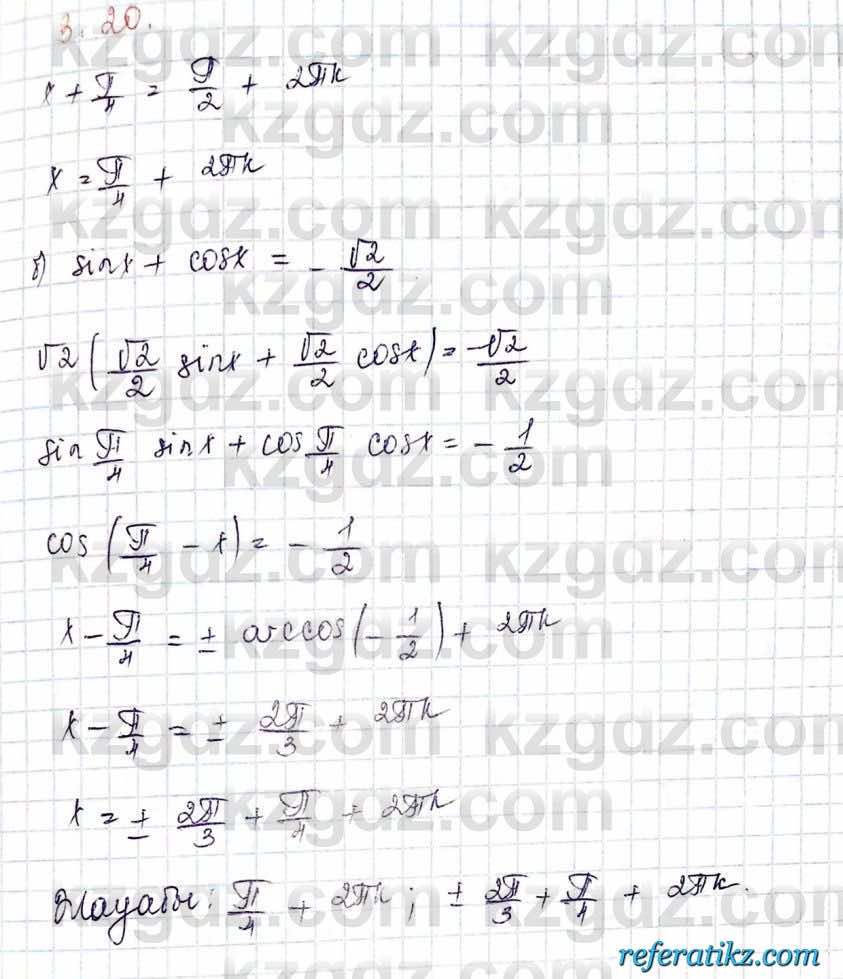 3.20.
x + π/4 = π/2 + 2πk
x = π/4 + 2πk
sinx + cosx = - √2/2
√2(√2/2 sinx + √2/2 cosx) = -√2/2
sin π/4 sinx + cos π/4 cosx = - 1/2
cos(π/4 - x) = - 1/2
x - π/4 = ± arccos(-1/2) + 2πk
x - π/4 = ± 2π/3 + 2πk
x = ± 2π/3 + π/4 + 2πk
Жауабы: π/4 + 2πk; ± 2π/3 + π/4 + 2πk.
kzgdz.com
referatikz.com